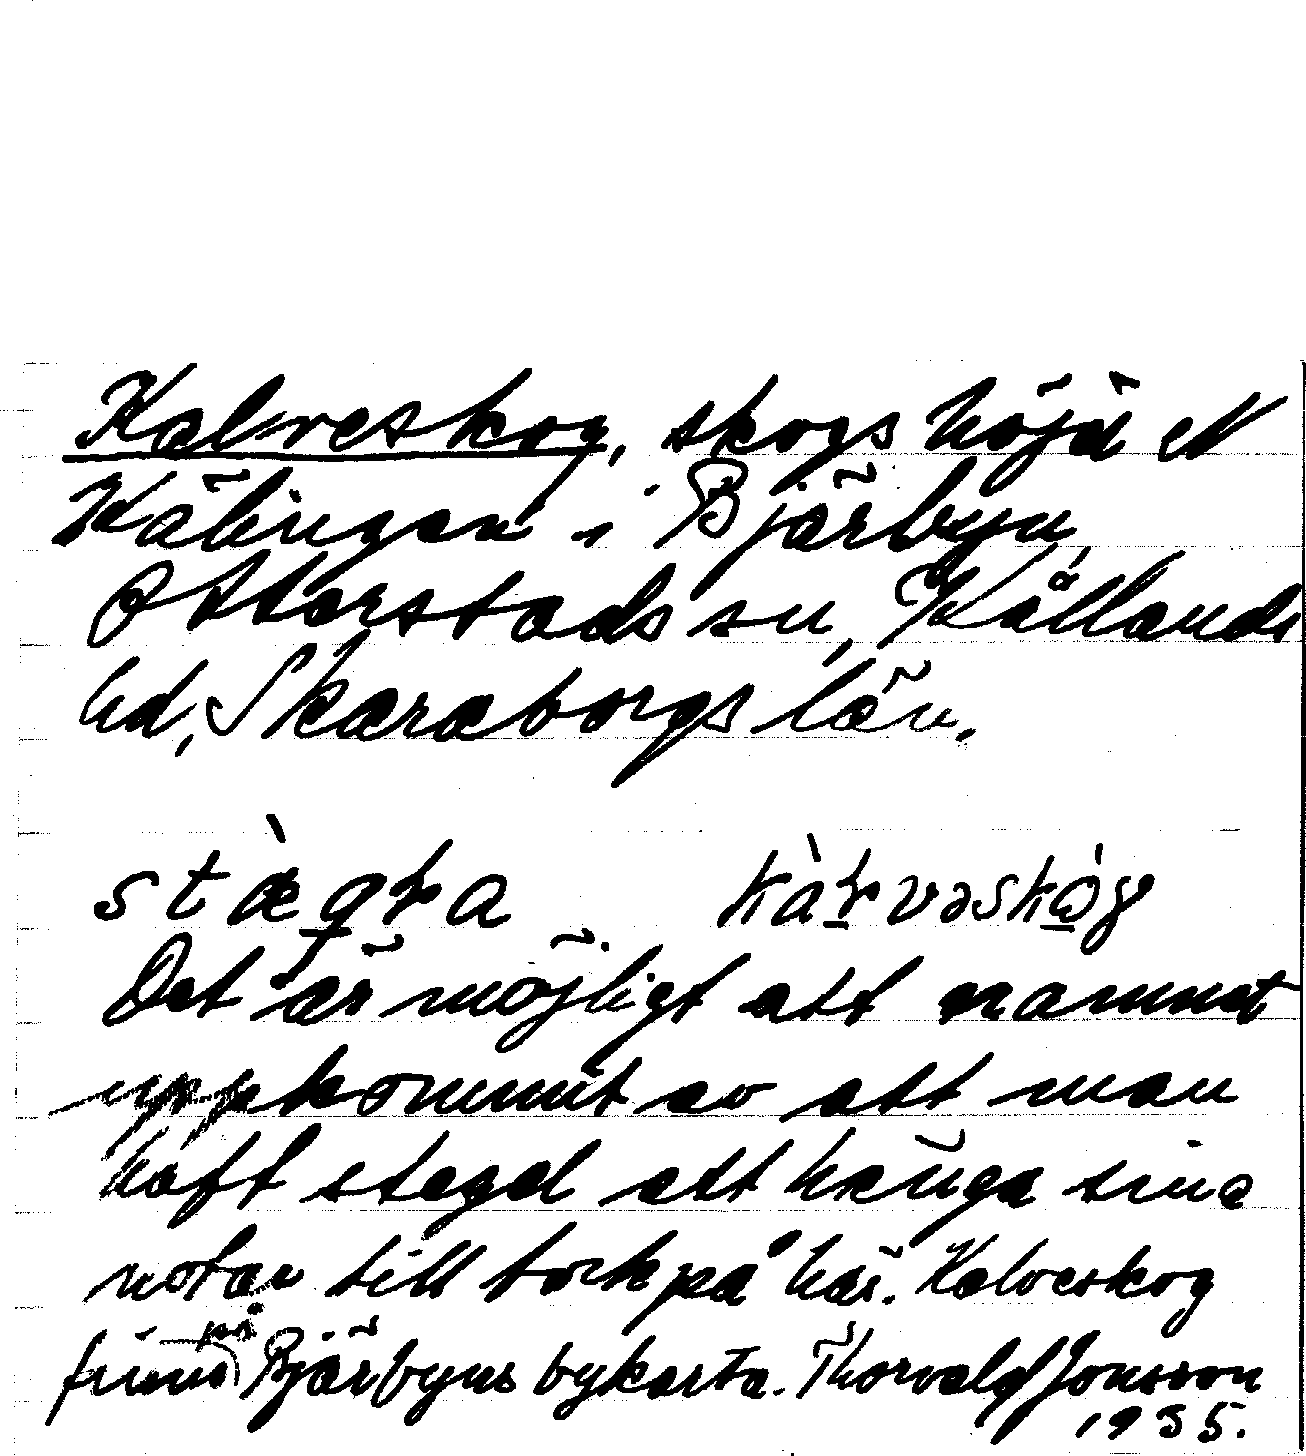 Kalveskog, skogshöjd N
Källingen i Bjärbyn,
Otterstads sn, Kållands
hd, Skaraborgs län.
kàɽvəskòg
Det är möjligt att namnet
uppkommit av att man
haft stegel att hänga sina
notar till tork på här. Kalveskog
finns på Bjärbyns bykarta. Thorvald Jonsson
1935.